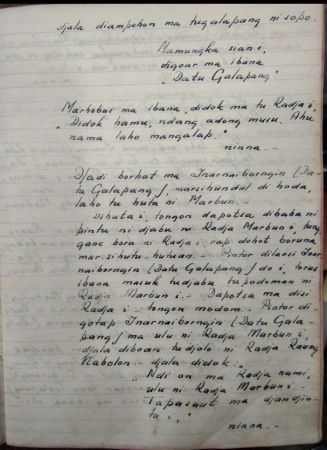 djala diampehon ma tugalapang ni sopo.
Mamungka sian i,
migoar ma ibana
"Datu Galapang"
Marhobas ma ibana, didok ma tu Radja i,
"Didok hamu, ndang adong musu, Ahu
nama laho mangalap."
ninna. -
Djadi borhat ma Inarnaiborngin (Da-
tu Galapang), marsibundul di hoda,
laho tu huta ni Marbun.
Dihuta i, tongon dapotsa dibaba ni
pintu ni djabu ni Radja Marbun i, tung
gane boru ni Radja i, rap dohot boruna
marsihutu-hutuan. - Pintor dilaosi Inar
naiborngin (Datu Galapang) do i, torus
ibana masuk tudjabu tu podoman ni
Radja Marbun i. - Dapotsa ma disi
Radja i tongon modom. - Pintor di-
gotap Inarnaiborngin (Datu Gala-
pang) ma ulu ni Radja Marbun i,
djala diboan tudjolo ni Radja Raung
Nabolon - djala didok:
"Ndi on ma Radja nami,
ulu ni Radja Marbun i. -
Tapasaut ma djandjin-
ta i,"
ninna. -